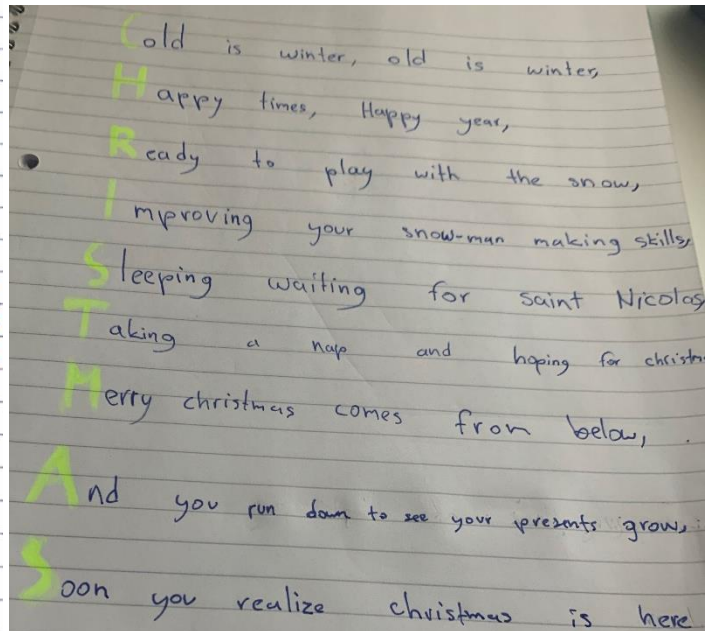 Cold is winter, old is winter,
Happy times, Happy year,
Ready to play with the snow,
Improving your snow-man making skills,
Sleeping waiting for saint Nicolas
Taking a nap and hoping for christm
Merry christmas comes from below,
And you run down to see your presents grow,
Soon you realize christmas is here